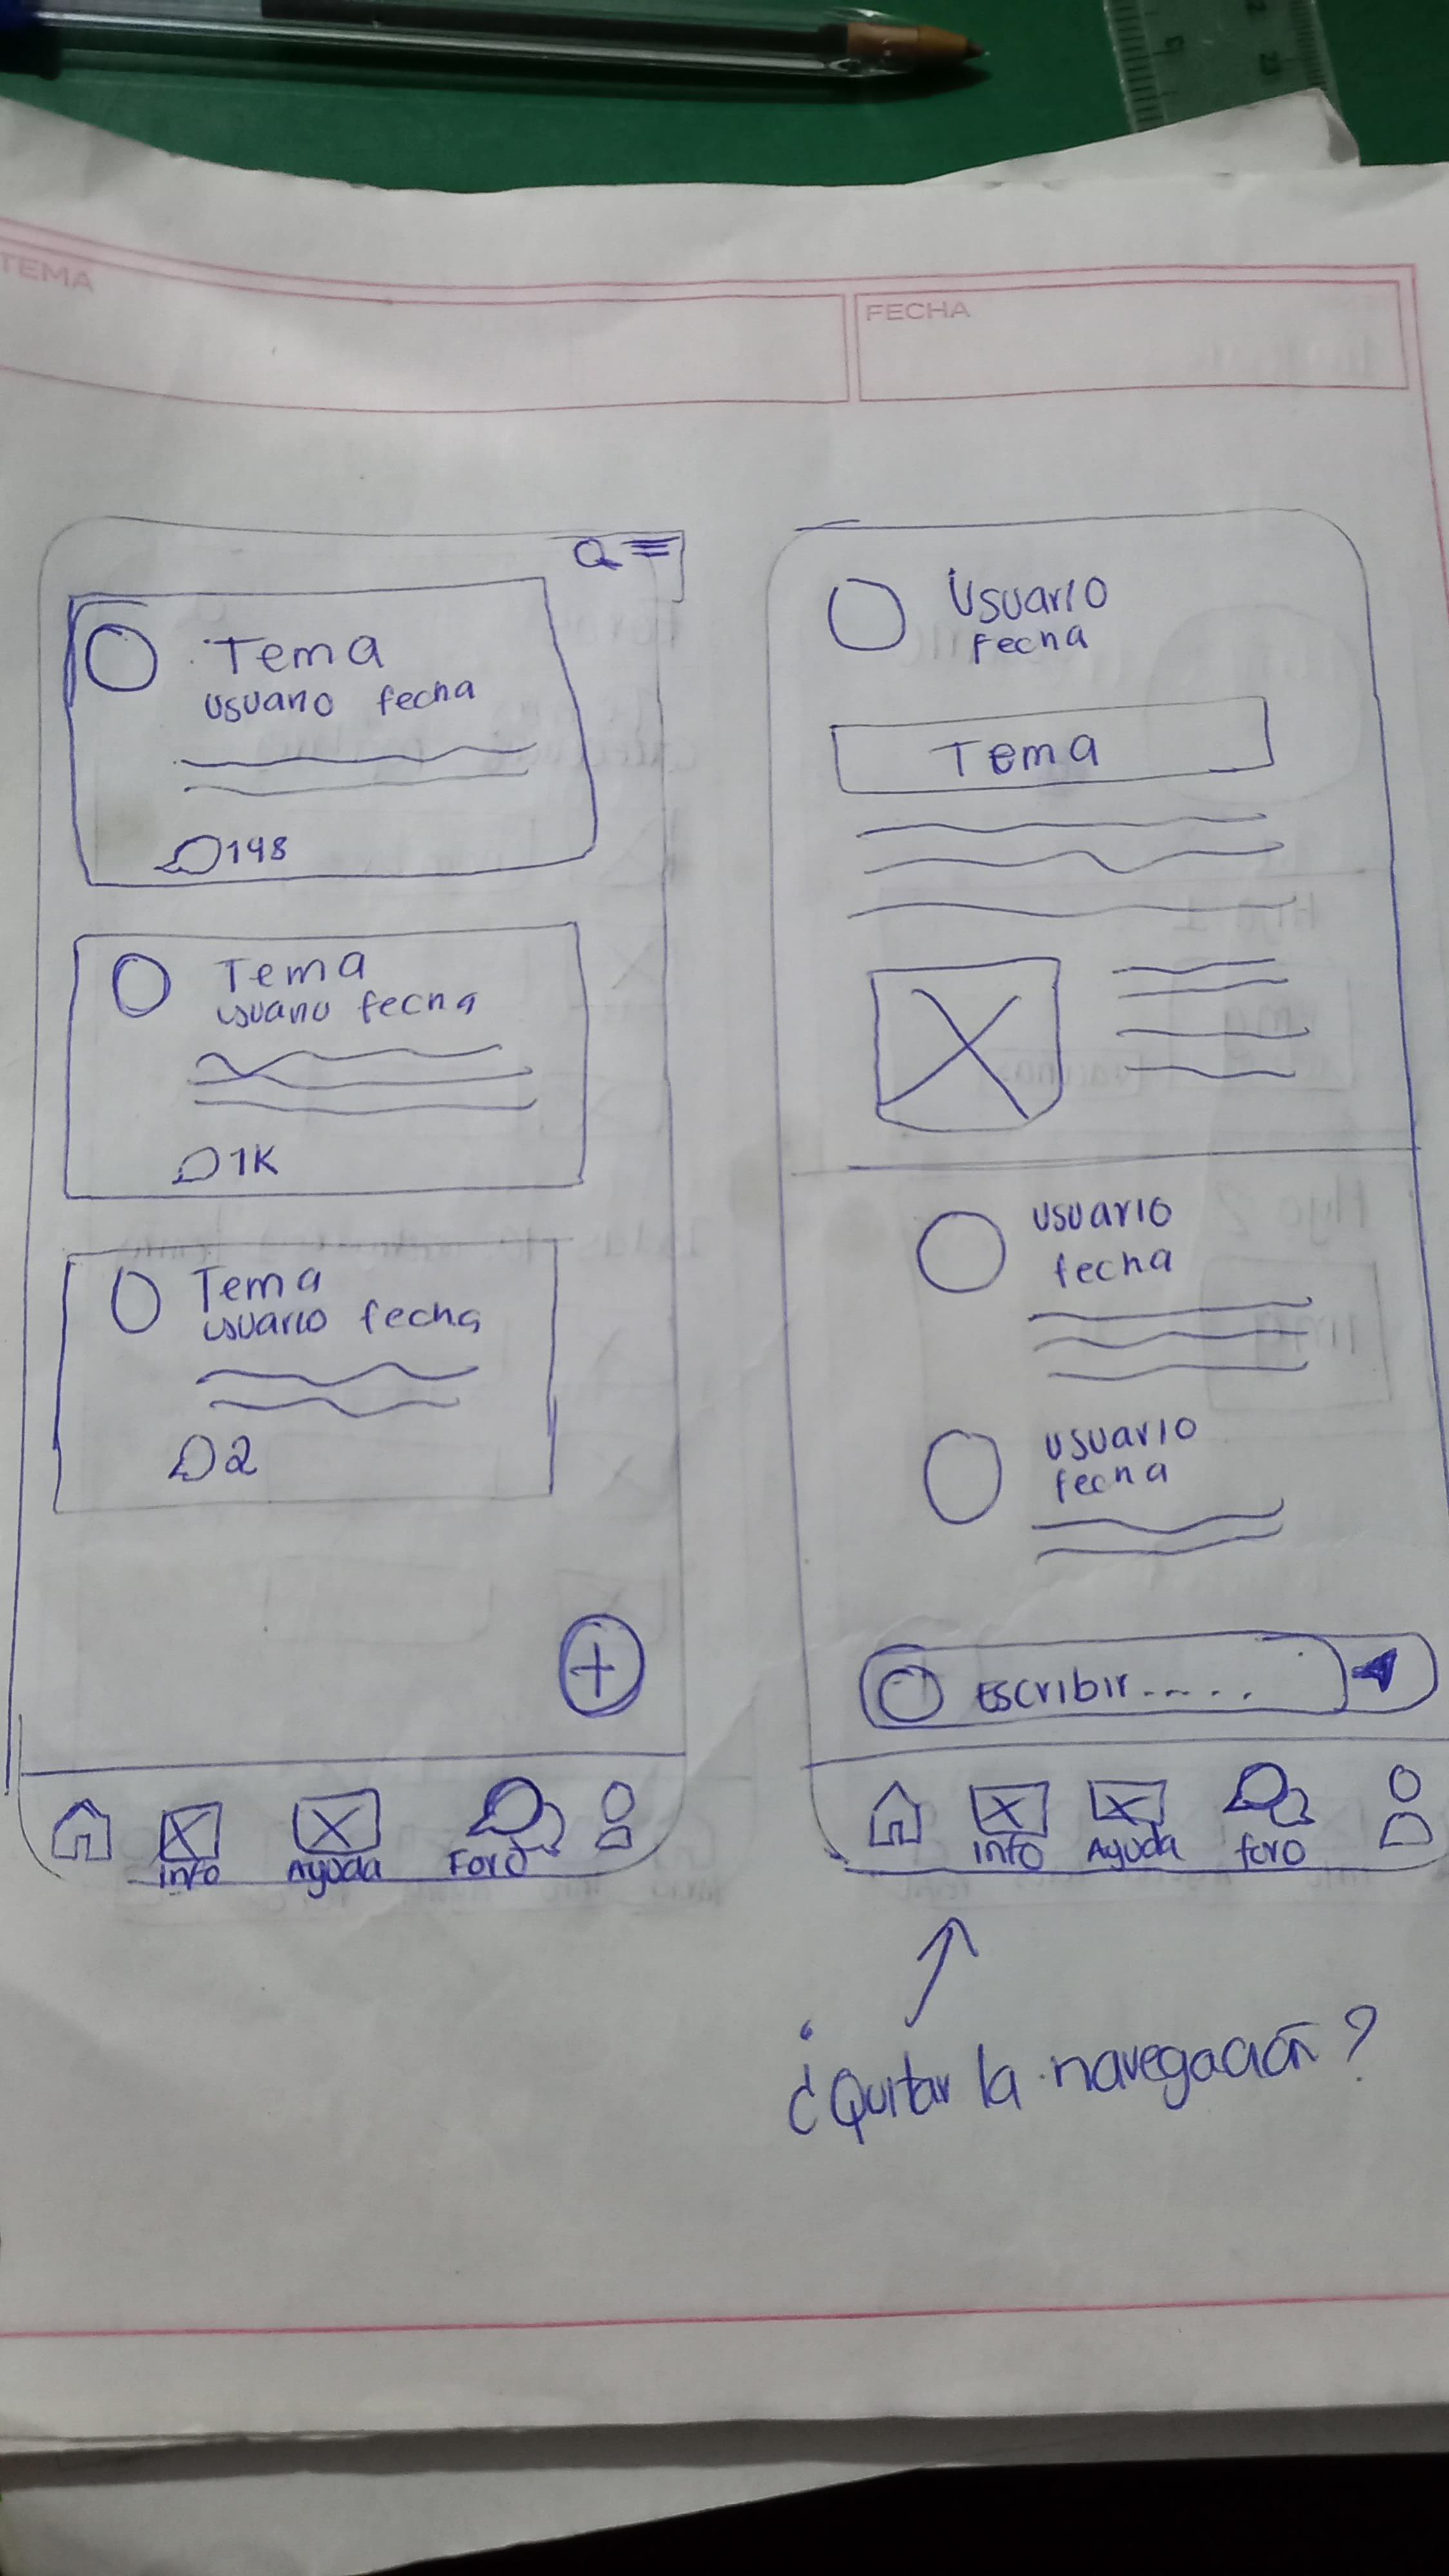 TEMA
FECHA
Tema
usuario fecha
198
Tema
usuario fecha
1K
Tema
usuario fecha
2
info
Ayuda
Foro
Usuario
Fecha
Tema
usuario
fecha
usuario
fecha
Escribir.....
info
Ayuda
foro
¿Quitar la navegación?